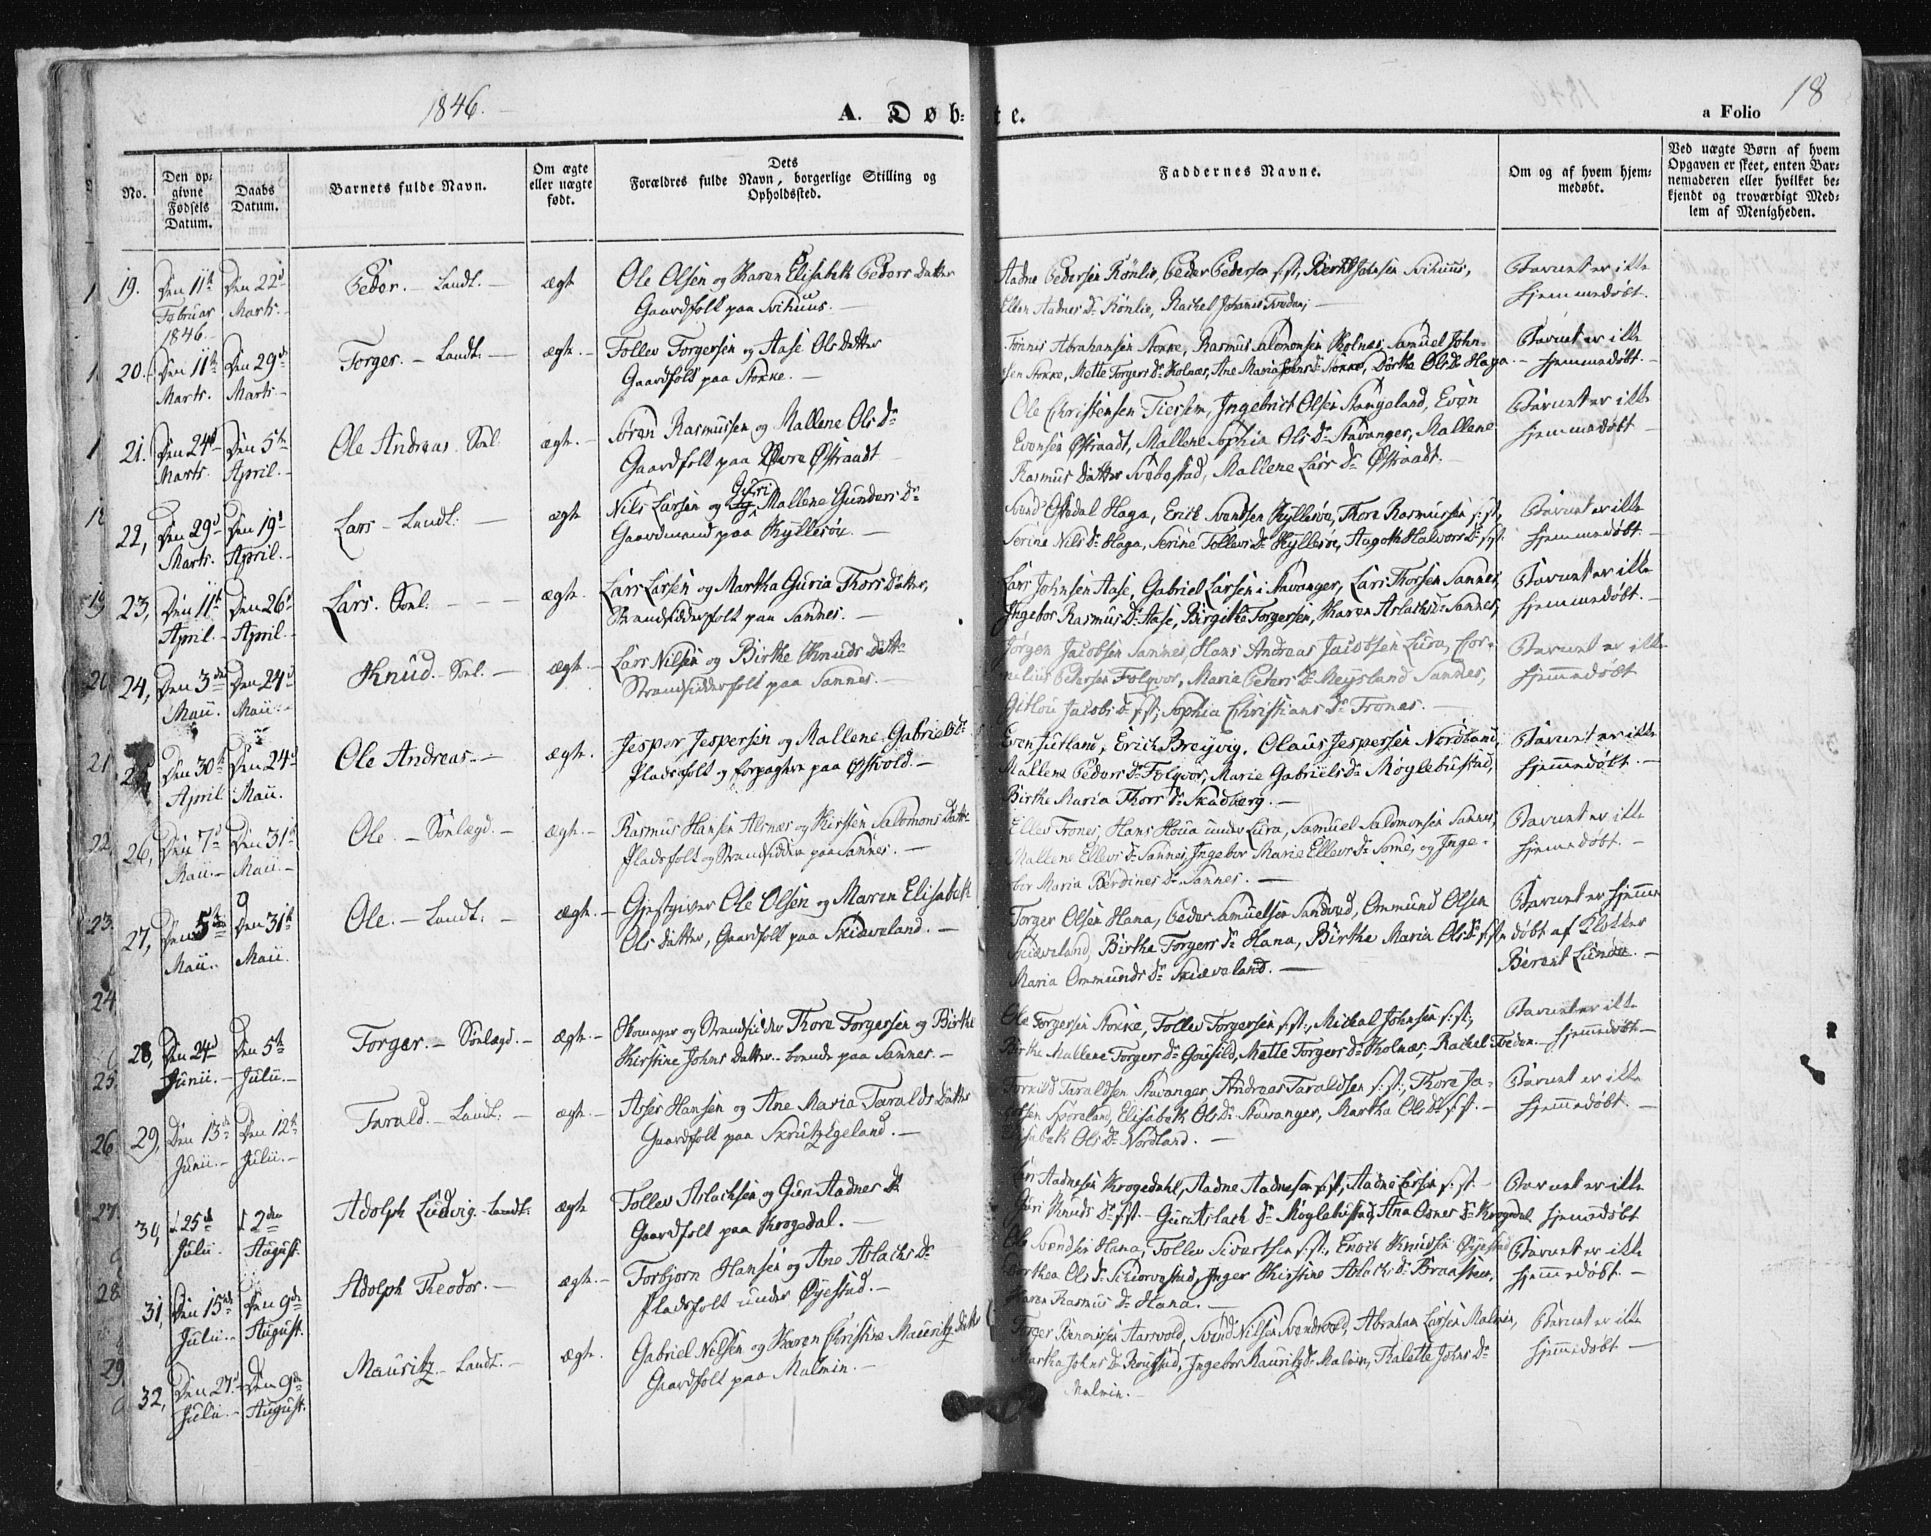 1846.
A. Døb-te.
a Folio
18
No.
Den op-
givne
Fødsels
Datum.
Daabs
Datum.
Barnets fulde Navn.
Om ægte
eller uægte
født.
Dets
Forældres fulde Navn, borgerlige Stilling og
Opholdssted.
Faddernes Navne.
Om og af hvem hjem-
medøbt.
Ved uægte Børn af hvem
Opgaven er skeet, enten Bar-
nemoderen eller hvilket be-
kjendt og troværdigt Med-
lem af Menigheden.
19. Den 11te Februar 1846. Den 22d Marts. Peder. Landt. ægte
Ole Olsen og Karen Elisabeth Peders Datter
Gaardfolk paa Svihuus.
Aadne Pedersen Rönlie, Peder Pedersen s:st:, Berndt Johnsen Svihuus,
Ellen Aadnes Dr Rönlie, Rachel Johannes Tveden,
Barnet er ikke
hjemmedøbt.
20. Den 11te Marts. Den 29de Marts. Torger. Landt. ægte.
Tollev Torgersen og Aase Ols datter
Gaardfolk paa Stokke.
Tönnes Abrahamsen Stokke, Rasmus Salomonsen Holnæs, Samuel John-
sen Stokke, Mette Torgers Dr Holnæs, Ane Maria Johns Dr Stokke, Dorthe Ols Dr Haga.
Barnet er ikke
hjemmedøbt.
21. Den 24de Marts. Den 5te April. Ole Andreas. Sol. ægte.
Sören Rasmussen og Mallene Ols Dr
Gaardfolk paa Øvre Østraadt
Ole Christensen Tiessem, Ingebrict Olsen Stangeland, Even
Evensen Østraadt, Mallene Sophia Ols Dr Stavanger, Mallene
Rasmus Datter Svebostad, Mallene Lars Dr Østraadt.
Barnet er ikke
hjemmedøbt
22, Den 29d Marts. Den 19d April. Lars Landt. ægte
Nils Larsen og Guri Mallene Gunders Dr
Gaardmand paa Kyllesöe.
Svend Ovsdal Haga, Erick Svendsen Kyllesöe, Thore Rasmussen s:st,
Serine Nils Dr Haga, Serine Tollevs Dr Kyllesöe, Aagothe Halvors Dr s:st
Barnet er ikke
hjemmedøbt.
23, Den 11te April. Den 26d April. Lars. Sol. ægte.
Lars Larsen og Martha Guria Thors Datter,
Strandsidderfolk paa Sannes.
Lars Johnsen Aase, Gabriel Larsen i Stavanger, Lars Thorsen Sannes,
Ingebor Rasmus Dr Aase, Birgithe Torgersen, Karen Aslachs Dr Sannes,
Barnet er ikke
hjemmedøbt.
24, Den 3die Maii. Den 24d Maii. Knud. Sol. ægte.
Lars Nilsen og Birthe Knuds Datter
Strandsidderfolk paa Sannes.
Jörgen Jacobsen Sannes, Hans Andreas Jacobsen Lura, Cor-
nelius Pedersen Folqvor, Marie Peters Dr Meysland Sannes,
Gitlou Jacobs Dr s:st; Sophia Christians Dr Trones.
Barnet er ikke
hjemmedøbt
Den 30te April Den 24d Maii. Ole Andreas. ægte.
Jesper Jespersen og Mallene Gabriels Dr
Pladsfolk og forpagtere paa Østvold.
Even Jutland, Erich Breyvig, Olaus Jespersen Nordland,
Mallene Peders Dr Folqvor, Marie Gabriels Dr Moglebustad,
Birthe Maria Thors Dr Skadberg.
Barnet er ikke
hjemmedøbt.
26, Den 7d Maii. Den 31te Maii. Ole. Sönlægd. ægte.
Rasmus Hansen Alsnæs og Kirsten Salomons Datter
Pladsfolk og Strandsidder paa Sannes.
Ellev Trones, Hans Houa under Lura, Samuel Salomonsen Sannes,
Mallene Ellevs Dr Sannes, Ingebor Marie Ellevs Dr Some, og Inge-
bor Maria Berdines Dr Sannes.
Barnet er ikke
hjemmedøbt.
27, Den 5te Maii. Den 31te Maii. Ole. Landt. ægte.
Gjestgiver Ole Olsen og Maren Elisabeth
Ols datter, Gaardfolk paa Skiæveland.
Torger Olsen Hana, Peder Samuelsen Sandved, Ommund Olsen
Skiæveland, Birthe Torgers Dr Hana, Birthe Maria Ols Dr s:st
Maria Ommunds Dr Skiæveland.
Barnet er hjemme
døbt af Klokker
Berent Lunde.
28, Den 24d Junii. Den 5te Julii. Torger. Sönlægd. ægte.
Skomager og Strandsidder Thore Torgersen og Birthe
Kirstine Johns datter boende paa Sannes.
Ole Torgersen Stokke, Tollev Torgersen s:st:, Mickal Johnsen s:st,
Birthe Mallene Torgers Dr Gousild, Mette Torgers Dr Holnæs, Rachel Tveden.
Barnet er ikke
hjemmedøbt
29, Den 13de Junii. Den 12te Julii. Tarald. Landt. ægte.
Asser Hansen og Ane Maria Taralds Datter
Gaardfolk paa Skrutz Egeland.
Tornild Taraldsen Stavanger, Andreas Taraldsen s:st:, Thore Ja-
cobsen Sporeland, Elisabeth Ols Dr Stavanger, Martha Ols Dr s:st.
Elisabeth Ols Dr Nordland.
Barnet er ikke
hjemmedøbt.
30, d 25de Julii. d 2den August. Adolph Ludvig. Landt. ægte
Tollev Aslachsen og Guri Aadnes Dr
Gaardfolk paa Krogedal.
Aadnesen Krogedahl, Aadne Aadnesen s:st, Aadne Larsen s:st.
Guri Knuds Dr s:st. Guri Aslach Dr Moglebustad, Ane Osnes Dr Krogedal
Barnet er ikke
hjemmedøbt
31, Den 15de Julii. Den 9de August. Adolph Theodor. ægte.
Torbjørn Hansen og Ane Aslachs Dr
Pladsfolk under Øyestad.
Ole Svendsen Hana, Tollev Sivertsen s:st:, Enoch Knudsen Øyestad
Dorthea Ols Dr Schiorestad, Inger Kirstine Aslachs Dr Braasteen,
Karen Rasmus Dr Hana.
Barnet er ikke
hjemmedøbt.
32, Den 27d Julii. Den 9de August. Mauritz. Landt. ægte.
Gabriel Nilsen og Karen Christine Mauritz datter
Gaardfolk paa Malmin.
Torger Aarsvold, Svend Nilsen Svendsvold, Abraham Larsen Malmin,
Martha Johns Dr Rougstad, Ingebor Mauritz Dr Malmin, Thalette Johns Dr
Malmin.
Barnet er ikke
hjemmedøbt